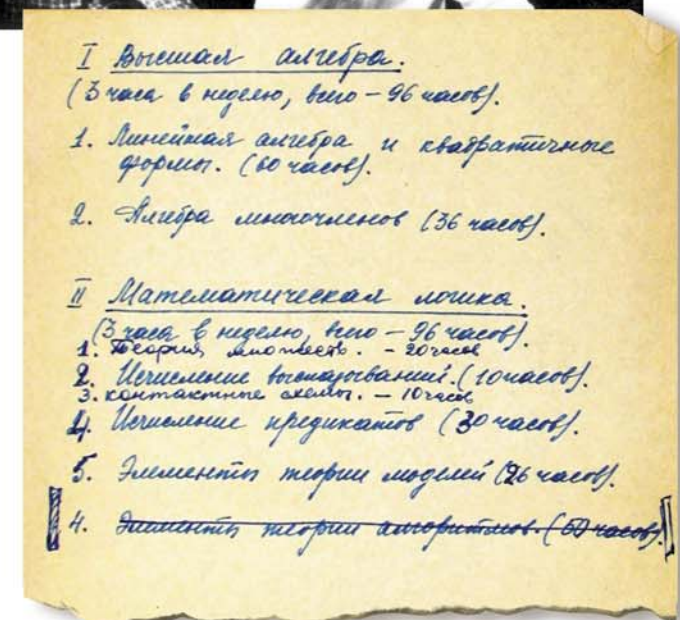 I Высшая алгебра.
(3 часа в неделю, всего – 96 часов).
1. Линейная алгебра и квадратичные
формы. (60 часов).
2. Алгебра многочленов (36 часов).
II Математическая логика.
(3 часа в неделю, всего – 96 часов).
1. Теория множеств. – 20 часов
2. Исчисление высказываний. (10 часов).
3. контактные схемы. – 10 часов
4. Исчисление предикатов (30 часов).
5. Элементы теории моделей (26 часов).
4. Элементы теории алгоритмов. (50 часов).